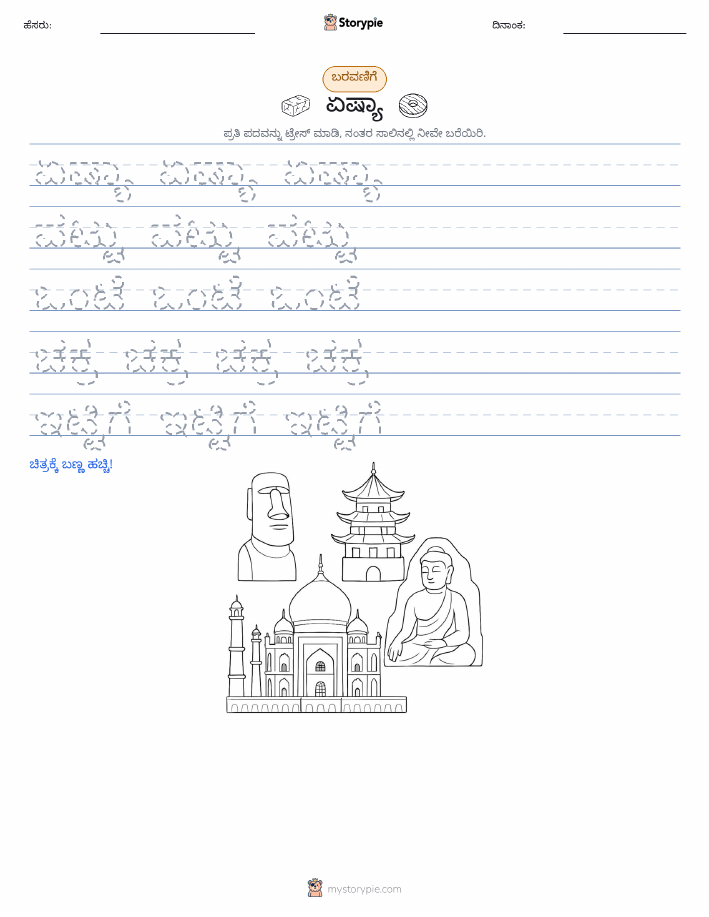 ಹೆಸರು:
Storypie
ದಿನಾಂಕ:
ಬರವಣಿಗೆ
ಏಷ್ಯಾ
ಪ್ರತಿ ಪದವನ್ನು ಟ್ರೇಸ್ ಮಾಡಿ, ನಂತರ ಸಾಲಿನಲ್ಲಿ ನೀವೇ ಬರೆಯಿರಿ.
ಏಷ್ಯಾ ಏಷ್ಯಾ ಏಷ್ಯಾ
ಒಂಟೆ ಒಂಟೆ ಒಂಟೆ
ಚಕ್ರ ಚಕ್ರ ಚಕ್ರ ಚಕ್ರ
ಇಟ್ಟಿಗೆ ಇಟ್ಟಿಗೆ ಇಟ್ಟಿಗೆ
ಚಿತ್ರಕ್ಕೆ ಬಣ್ಣ ಹಚ್ಚಿ!
mystorypie.com